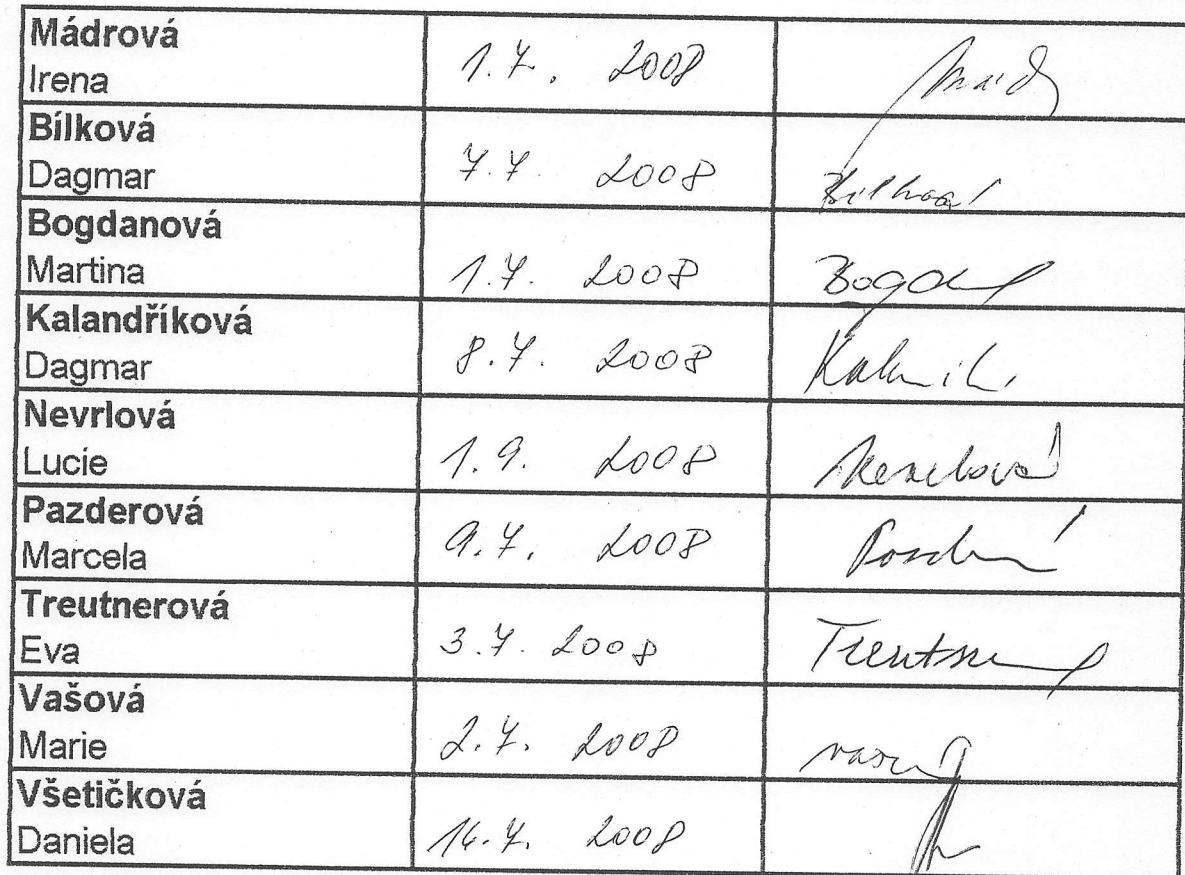 Mádrová
Irena
1.7. 2008
Bílková
Dagmar
7.7. 2008
Bogdanová
Martina
1.7. 2008
Kalandříková
Dagmar
8.7. 2008
Nevrlová
Lucie
1.9. 2008
Pazderová
Marcela
9.7. 2008
Treutnerová
Eva
3.7. 2008
Vašová
Marie
2.7. 2008
Všetičková
Daniela
2008